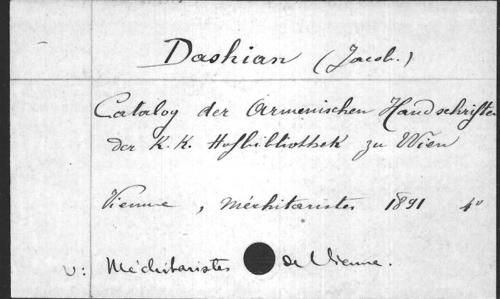 Dashian (Jacob.)
Catalog der Armenischen Handschriften
der K. K. Hofbibliothek zu Wien
Vienne, Mékhitaristes 1891 4º
v: Méchitaristes de Vienne.